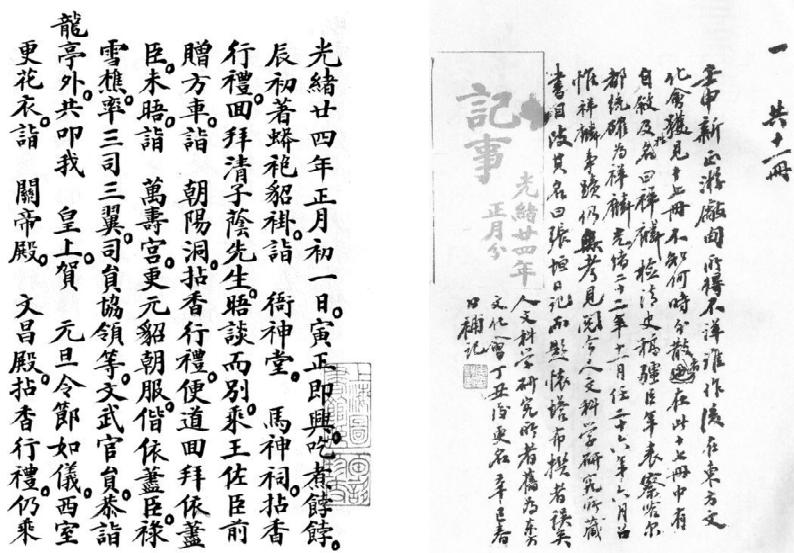 一 共十一冊
壬申新正游廠甸所得不詳誰作後在東方文
化會獲見十七冊不知何時分散在此十七冊中有
自敘及名曰祥麟檢清史稿疆臣年表察哈爾
都統確為祥麟光緒二十二年十一月任二十六年六月
惟祥麟事蹟仍無考見況今人文科學研究所藏
書目改其名曰張垣日記而題懷塔布撰者誤矣
人文科學研究所者舊為東方
文化會丁丑後更名辛巳春
日補記
記事
光緒廿四年
正月分
光緒廿四年正月初一日。寅正即興。吃煮餑餑。
辰初著蟒袍貂褂。詣 衙神堂。 馬神祠拈香
行禮。回拜清子蔭先生。晤談而別。乘王佐臣前
贈方車。詣 朝陽洞。拈香行禮。便道回拜依藎
臣。未晤。詣 萬壽宮。更元貂朝服。偕依藎臣。祿
雪樵。率三司三翼司員協領等。文武官員。恭詣
龍亭外。共叩我 皇上賀 元旦令節如儀。西室
更花衣。詣 關帝殿。 文昌殿。拈香行禮。仍乘